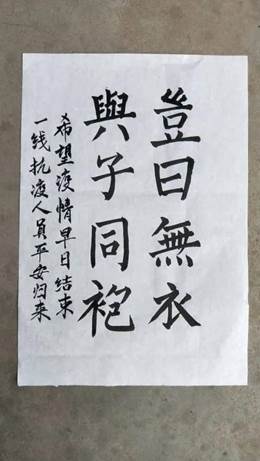 豈曰無衣
與子同袍
希望疫情早日结束
一线抗疫人員平安归来